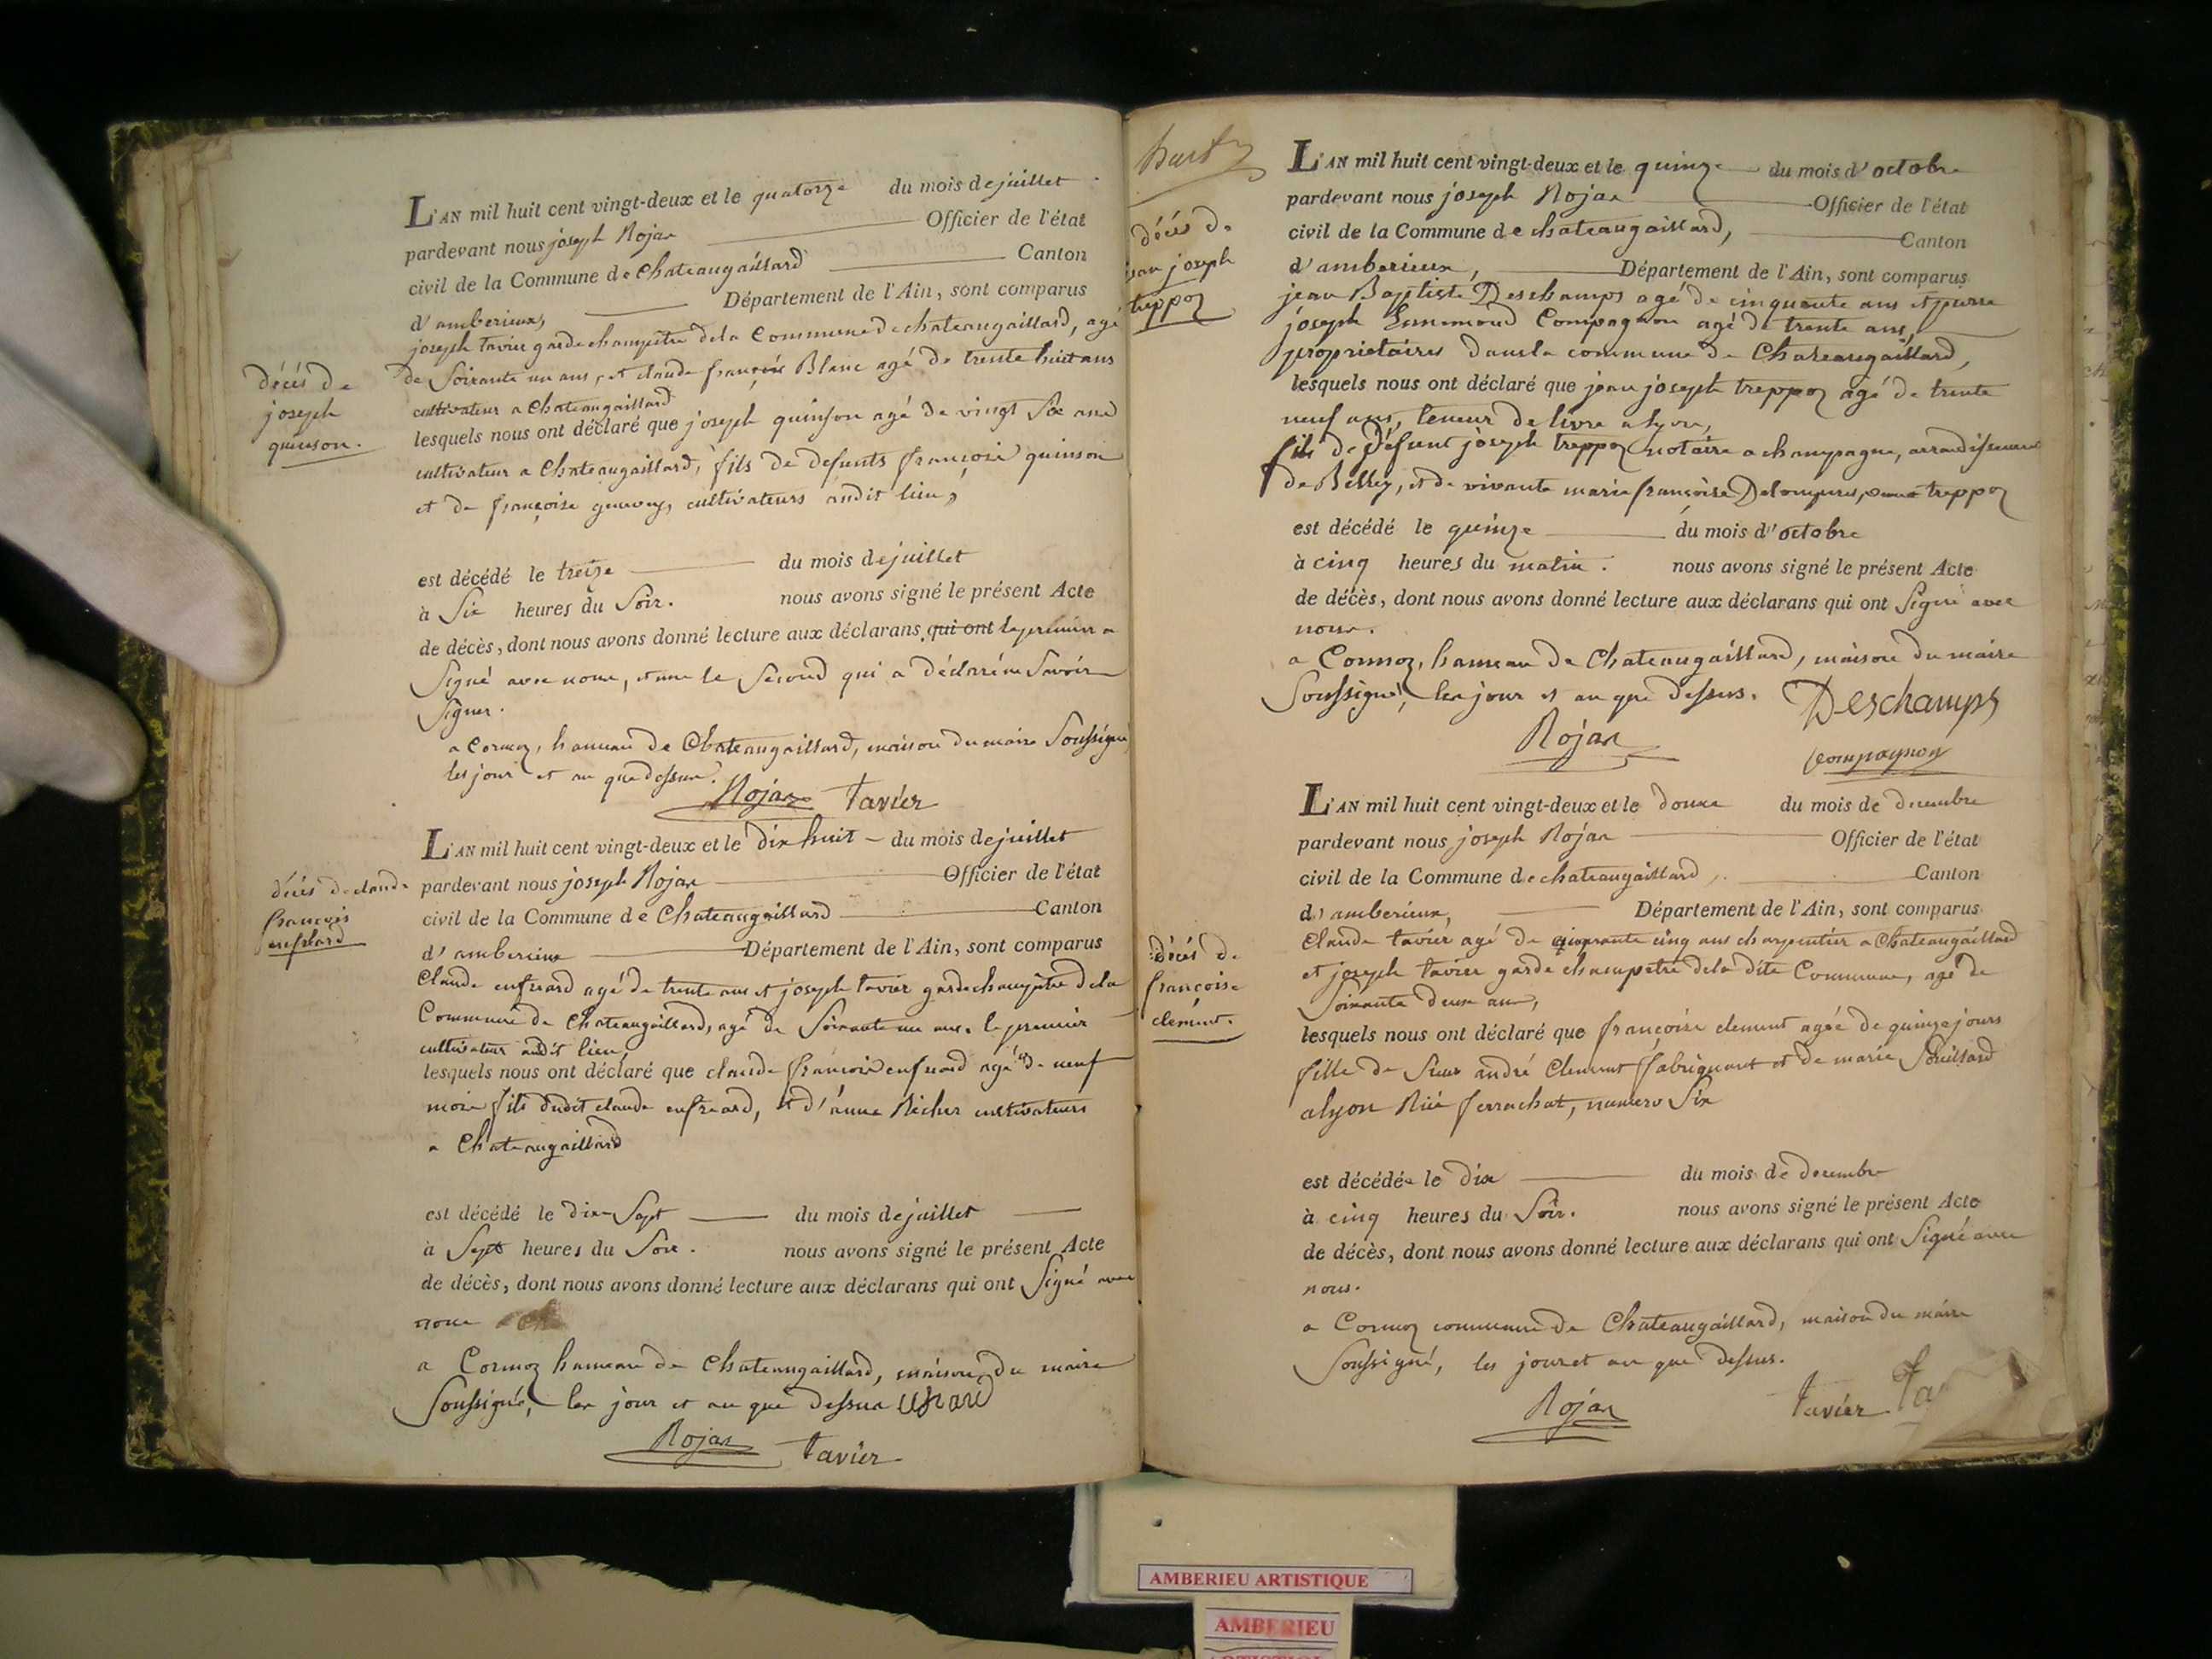 L'AN mil huit cent vingt-deux et le quatorze du mois de juillet
pardevant nous joseph Rojar Officier de l'état
civil de la Commune de Chateaugaillard Canton
d'amberieux, Département de l'Ain, sont comparus
joseph tavier garde champêtre de la Commune de chateaugaillard, agé
de Soixante un ans, et claude françois Blanc agé de trente huit ans
cultivateur a Chateaugaillard
lesquels nous ont déclaré que joseph quinson agé de vingt Six ans
cultivateur a Chateaugaillard, fils de defunts françois quinson
et de françoise cultivateurs audit lieu,
décés de
joseph
quinson.
est décédé le treize du mois de juillet
à Six heures du Soir. nous avons signé le présent Acte
de décès, dont nous avons donné lecture aux déclarans qui ont le premier a
Signé avec nous, et non le Second qui a déclaré ne Savoir
Signer.
a Cormoz, hameau de Chateaugaillard, maison du maire Soussigné
les jour et an que dessus.
Rojar tavier
L'AN mil huit cent vingt-deux et le dix huit du mois de juillet
pardevant nous joseph Rojar Officier de l'état
civil de la Commune de Chateaugaillard Canton
d'amberieux Département de l'Ain, sont comparus
décés de claude
francois
Claude agé de trente ans et joseph tavier garde champêtre de la
Commune de Chateaugaillard, agé de Soixante un ans. le premier
cultivateur audit lieu,
lesquels nous ont déclaré que claude francois agé de neuf
mois fils dudit claude et d'anne Richer cultivateurs
a Chateaugaillard
est décédé le dix Sept du mois de juillet
à Sept heures du Soir. nous avons signé le présent Acte
de décès, dont nous avons donné lecture aux déclarans qui ont Signé avec
nous
a Cormoz hameau de Chateaugaillard, maison du maire
Soussigné, les jour et an que dessus
Rojar tavier
L'AN mil huit cent vingt-deux et le quinze du mois d'octobre
pardevant nous joseph Rojar Officier de l'état
civil de la Commune de chateaugaillard, Canton
d'amberieux, Département de l'Ain, sont comparus
décés de
jean joseph
treppoz
jean Baptiste Deschamps agé de cinquante ans et pierre
joseph Ennemond Compagnon agé de trente ans,
proprietaires dans la commune de Chateaugaillard,
lesquels nous ont déclaré que jean joseph treppoz agé de trente
neuf ans, teneur de livre a lyon,
fils de Défunt joseph treppoz notaire a champagne, arrondissement
de Belley, et de vivante marie françoise treppoz
est décédé le quinze du mois d'octobre
à cinq heures du matin. nous avons signé le présent Acte
de décès, dont nous avons donné lecture aux déclarans qui ont Signé avec
nous.
a Cormoz, hameau de Chateaugaillard, maison du maire
Soussigné, les jour et an que dessus. Deschamps
Rojar compagnon
L'AN mil huit cent vingt-deux et le douze du mois de decembre
pardevant nous joseph Rojar Officier de l'état
civil de la Commune de chateaugaillard, Canton
d'amberieux, Département de l'Ain, sont comparus
Claude tavier agé de cinq ans charpentier a Chateaugaillard
et joseph tavier garde champetre de la dite Commune, agé de
Soixante deux ans,
décés de
françoise
clement.
lesquels nous ont déclaré que françoise clement agée de quinze jours
fille de Sieur andré Clement fabriquant et de marie
a lyon Rue ferrachat, numero Six
est décédée le dix du mois de decembre
à cinq heures du Soir. nous avons signé le présent Acte
de décès, dont nous avons donné lecture aux déclarans qui ont Signé avec
nous.
a Cormoz commune de Chateaugaillard, maison du maire
Soussigné, les jour et an que dessus.
Rojar tavier
AMBERIEU ARTISTIQUE
AMBERIEU